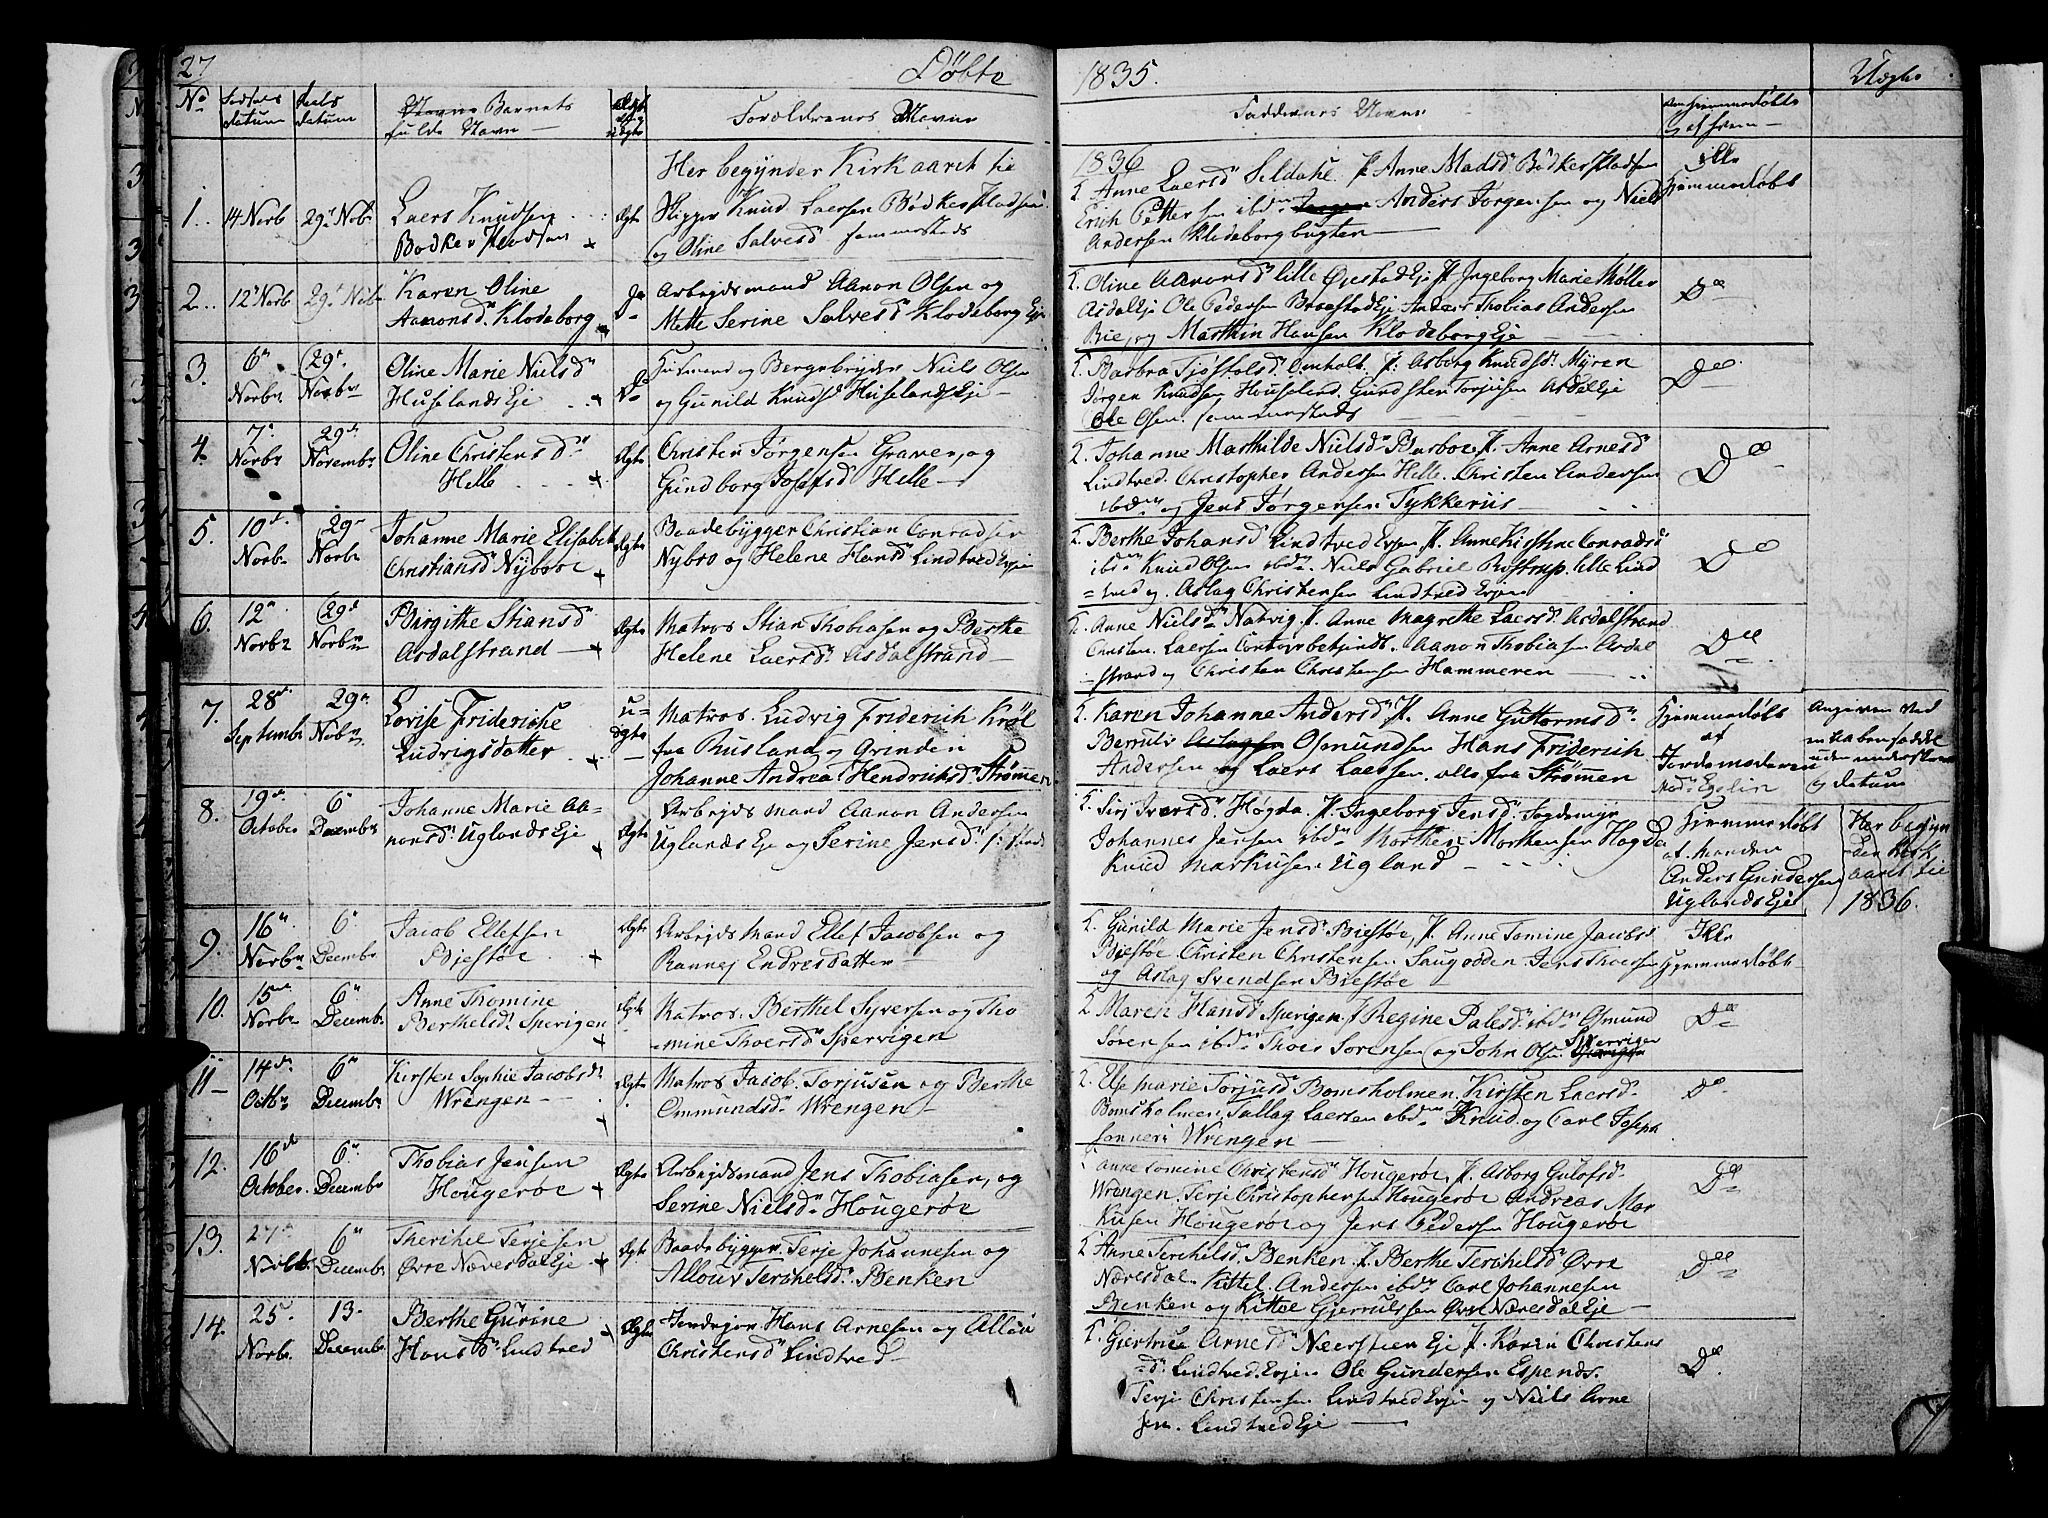 27
Döbte
1835.
Uægte
No
Fødsels datum
Daabs datum
Barnets
fulde Navn
Ægte
Uægte
Foreldrenes Navne
Faddernes Navne
Her begynder Kirkaaret til
1836
1.
14 Novb
29de Nob
Laers Knudsen
Bødker Pladsen
Ægte
Skipper Knud Laersen Bødker Pladsen
og Oline Salvesd sammesteds
1. Anne Laersd Seldahl 2. Anne Madsd Bødker Pladsen
Erich Petter sen ibdm Anders Jørgensen og Niels
Andersen Klodeborgbugten
ikke
Hjemmedøbt
2.
12 Novb
29d Nob
Karen Oline
Aanonsd Klodeborg
Do
Arbejdsmand Aanon Olsen og
Mette Serine Salvesd Klodeborg Eje
1. Oline Aanonsd lille Øjestad Eje 2. Ingeborg Marie Møller
Asdal Eje Ole Pedersen Thobias Andersen
Bie, og Marthin Hansen Klodeborg Eje
Do
3.
6 Novbr
29d Novbr
Oline Marie Nielsd
Huselands Eje
Do
Husmand og Bergebryder Niels Olsen
og Gunild Knudsd Huselands Eje
1. Barbra Tjøstolsd Omholt 2. Asborg Knudsd Myren
Jørgen Knudsen Houseland Gundsten Torjusen Asdal Eje
Ole Olsen sammesteds
Do
4.
7 Novbr
29de Novembr
Oline Christensd
Helle
Ægte
Christen Jørgensen Graver, og
Gundborg Josefsd Helle
1. Johanne Marthilde Nielsd Barboe, 2. Anne Arnesd
Lindtved Christopher Andersen Helle Christen Andersen
ibdm og Jens Jørgensen Tykkeriis
Do
5.
10d Novbr
29 Novbr
Johanne Marie Elisabet
Christiansd Nyboe
Ægte
Baadebygger Christian Conradsen
Nybro og Helene Hansd Lindtved Ejen
1. Berthe Johansd Lindtved Ejen 2. Anne Kirstine Conradsd
ibdm Knud Olsen ibdm Niels Gabriel Rostrup lille Lind
tved og Aslag Christensen Lindtved Ejen
Do
6.
12 Novbr
29d Novbr
Birgithe Stiansd
Asdalstrand
Ægte
Matros Stian Thobiasen og Berthe
Helene Laersd Asdalstrand
1. Anne Nielsd Natvig, 2. Anne Magrethe Laersd Asdalstrand
Christen Laersen Contoirbetjendt Aanon Thobiasen Asdal
strand og Christen Christensen Hammeren
Do
7.
28d Septembr
29 Novbr
Lovise Friderische
Ludvigsdatter
uægte
Matros Ludvig Friderich Krøl
fra Rusland og Qvinden
Johanne Andrea Hendriksd Strømmen
1. Karen Johanne Andersd, 2. Anne Guttormsd
Berruls Osmundsen Hans Friderich
Andersen og Laers Laessen alle fra Strømmen
Hjemmedøbt
af
Jordemoderen
Mad Egelin
Angiven ved
uden underskrevne
og datum
8.
19d October
6 Decembr
Johanne Marie Aa-
nonsd Uglands Eje
Ægte
Arbejdsmand Aanon Andersen
Uglands Eje og Serine Jensd
1. Siri Iversd Høgda 2. Ingeborg Jensd
Johannes Jensen ibdm Morthen Morthensen Høgda
Knud Markusen Ugland
Hjemmedøbt
af Manden
Anders Gundersen
Uglands Eje
Her begyn
der Kirk
aaret til
1836.
9.
16 Novbr
6 Decembr
Jacob Ellefsen
Bjestøe
Ægte
Arbejdsmand Ellef Jacobsen og
Rannej Endresdatter
1. Gunild Marie Jensd Biestøe, 2. Anne Tomine Jacobsd
Biestøe Christen Christensen Saugodden Jens Thoersen
og Aslag Svendsen Biestøe
Ikke
Hjemmedøbt
10.
15 Novbr
6 Decembr
Anne Thomine
Berthelsd Spervigen
Ægte
Matros Berthel Syversen og Tho
mine Thoersd Spervigen
2. Maren Hansd Spervigen, Regine Palesd ibdm Osmund
Sørensen ibdm Thoer Sørensen og John Olsen Spervigen
Do
11
14de Octbr
6 Decembr
Kirsten Sophie Jacobsd
Wrengen
Ægte
Matros Jacob Torjusen og Berthe
Ommundsd Wrengen
2. Else Marie Torjusd Bomsholmen, Kirsten Laersd
Bomsholmen, Sallag Laersen ibdm Knud og Carl Joseph
sønner Wrengen
Do
12.
16d October
6 Decembr
Thobias Jensen
Hougerøe
Ægte
Arbejdsmand Jens Thobiasen, og
Serine Nielsd Hougerøe
1. Anne Tomine Christensd Hougerøe, 2. Asborg Gulofsd
Wrengen, Terje Christophersen Hougerøe Andreas Mar
kusen Hougerøe og Jens Pedersen Hougerøe
Do
13.
27
6 Decembr
Therkel Terjesen
Øvre Næresdal Eje
Ægte
Baadebygger Terje Johannesen og
Allouv Terchelsd Benken
1. Anne Terchelsd Benken, 2. Berthe Terchelsd Øvre
Næresdal Kittel Andersen ibdm Carl Johannesen
Benken og Kittel Gjerrulfsen Øvre Næresdal Eje
Do
14.
25 Novbr
13 Decembr
Berthe Gurine
Hansd Lindtved
Ægte
Hans Arnesen og Allou
Christensd Lindtved
1. Giertrue Arnesd Neersteen Eje 2. Karen Christens
d Lindtved Ejen Ole Gundersen Espenes
Terje Christensen Lindtved Ejen og Niels Arne
sen Lindtved Eje
Do